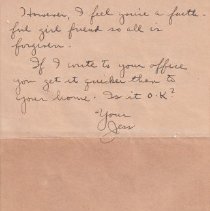 However, I feel you're a faith-
ful girl friend so all is
forgiven.
If I write to your office
you get it quicker than to
your home. Is it O.K?
Your
Jess